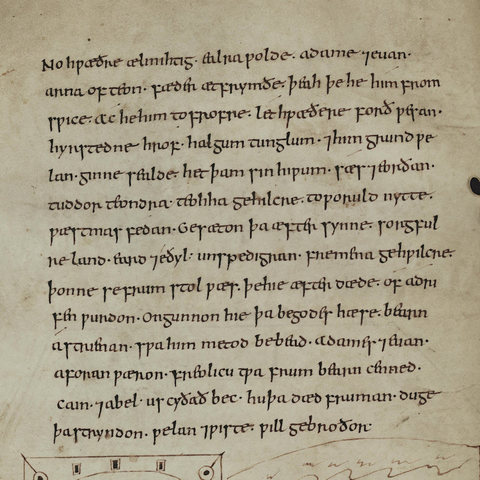 No hƿæðre ælmihtig· ealra ƿolde· adame ⁊ euan·
arna of teon· fæder æt frymðe· þeah þe he him from
sƿice· ac he him to frofre· let hƿæðere forð ƿesan·
hyrstedne hrof· halgum tunglum· ⁊ him grund ƿe
lan· ginne sealde· het þam sin hiƿum· sæs ⁊ eorðan·
tuddor teondra· teohha gehilcre· to ƿoruld nytte·
ƿæstmas fedan· Gesæton þa æfter synne· sorgful
re land· eard ⁊ eðyl· unspedigran· fremena gehƿilcre·
þonne se frum stol ƿæs· þe hie æfter dæde· of adri
fen ƿurdon· Ongunnon hie þa be godes hæse· bearn
astrienan· sƿa him metod bebead· adames ⁊ euan·
aforan ƿæron· freolicu tƿa frum bearn cenned·
cain· ⁊ abel· us cyðað bec· hu þa dæd fruman· duge
þa stryndon· ƿelan ⁊ ƿiste· ƿill gebroðor·